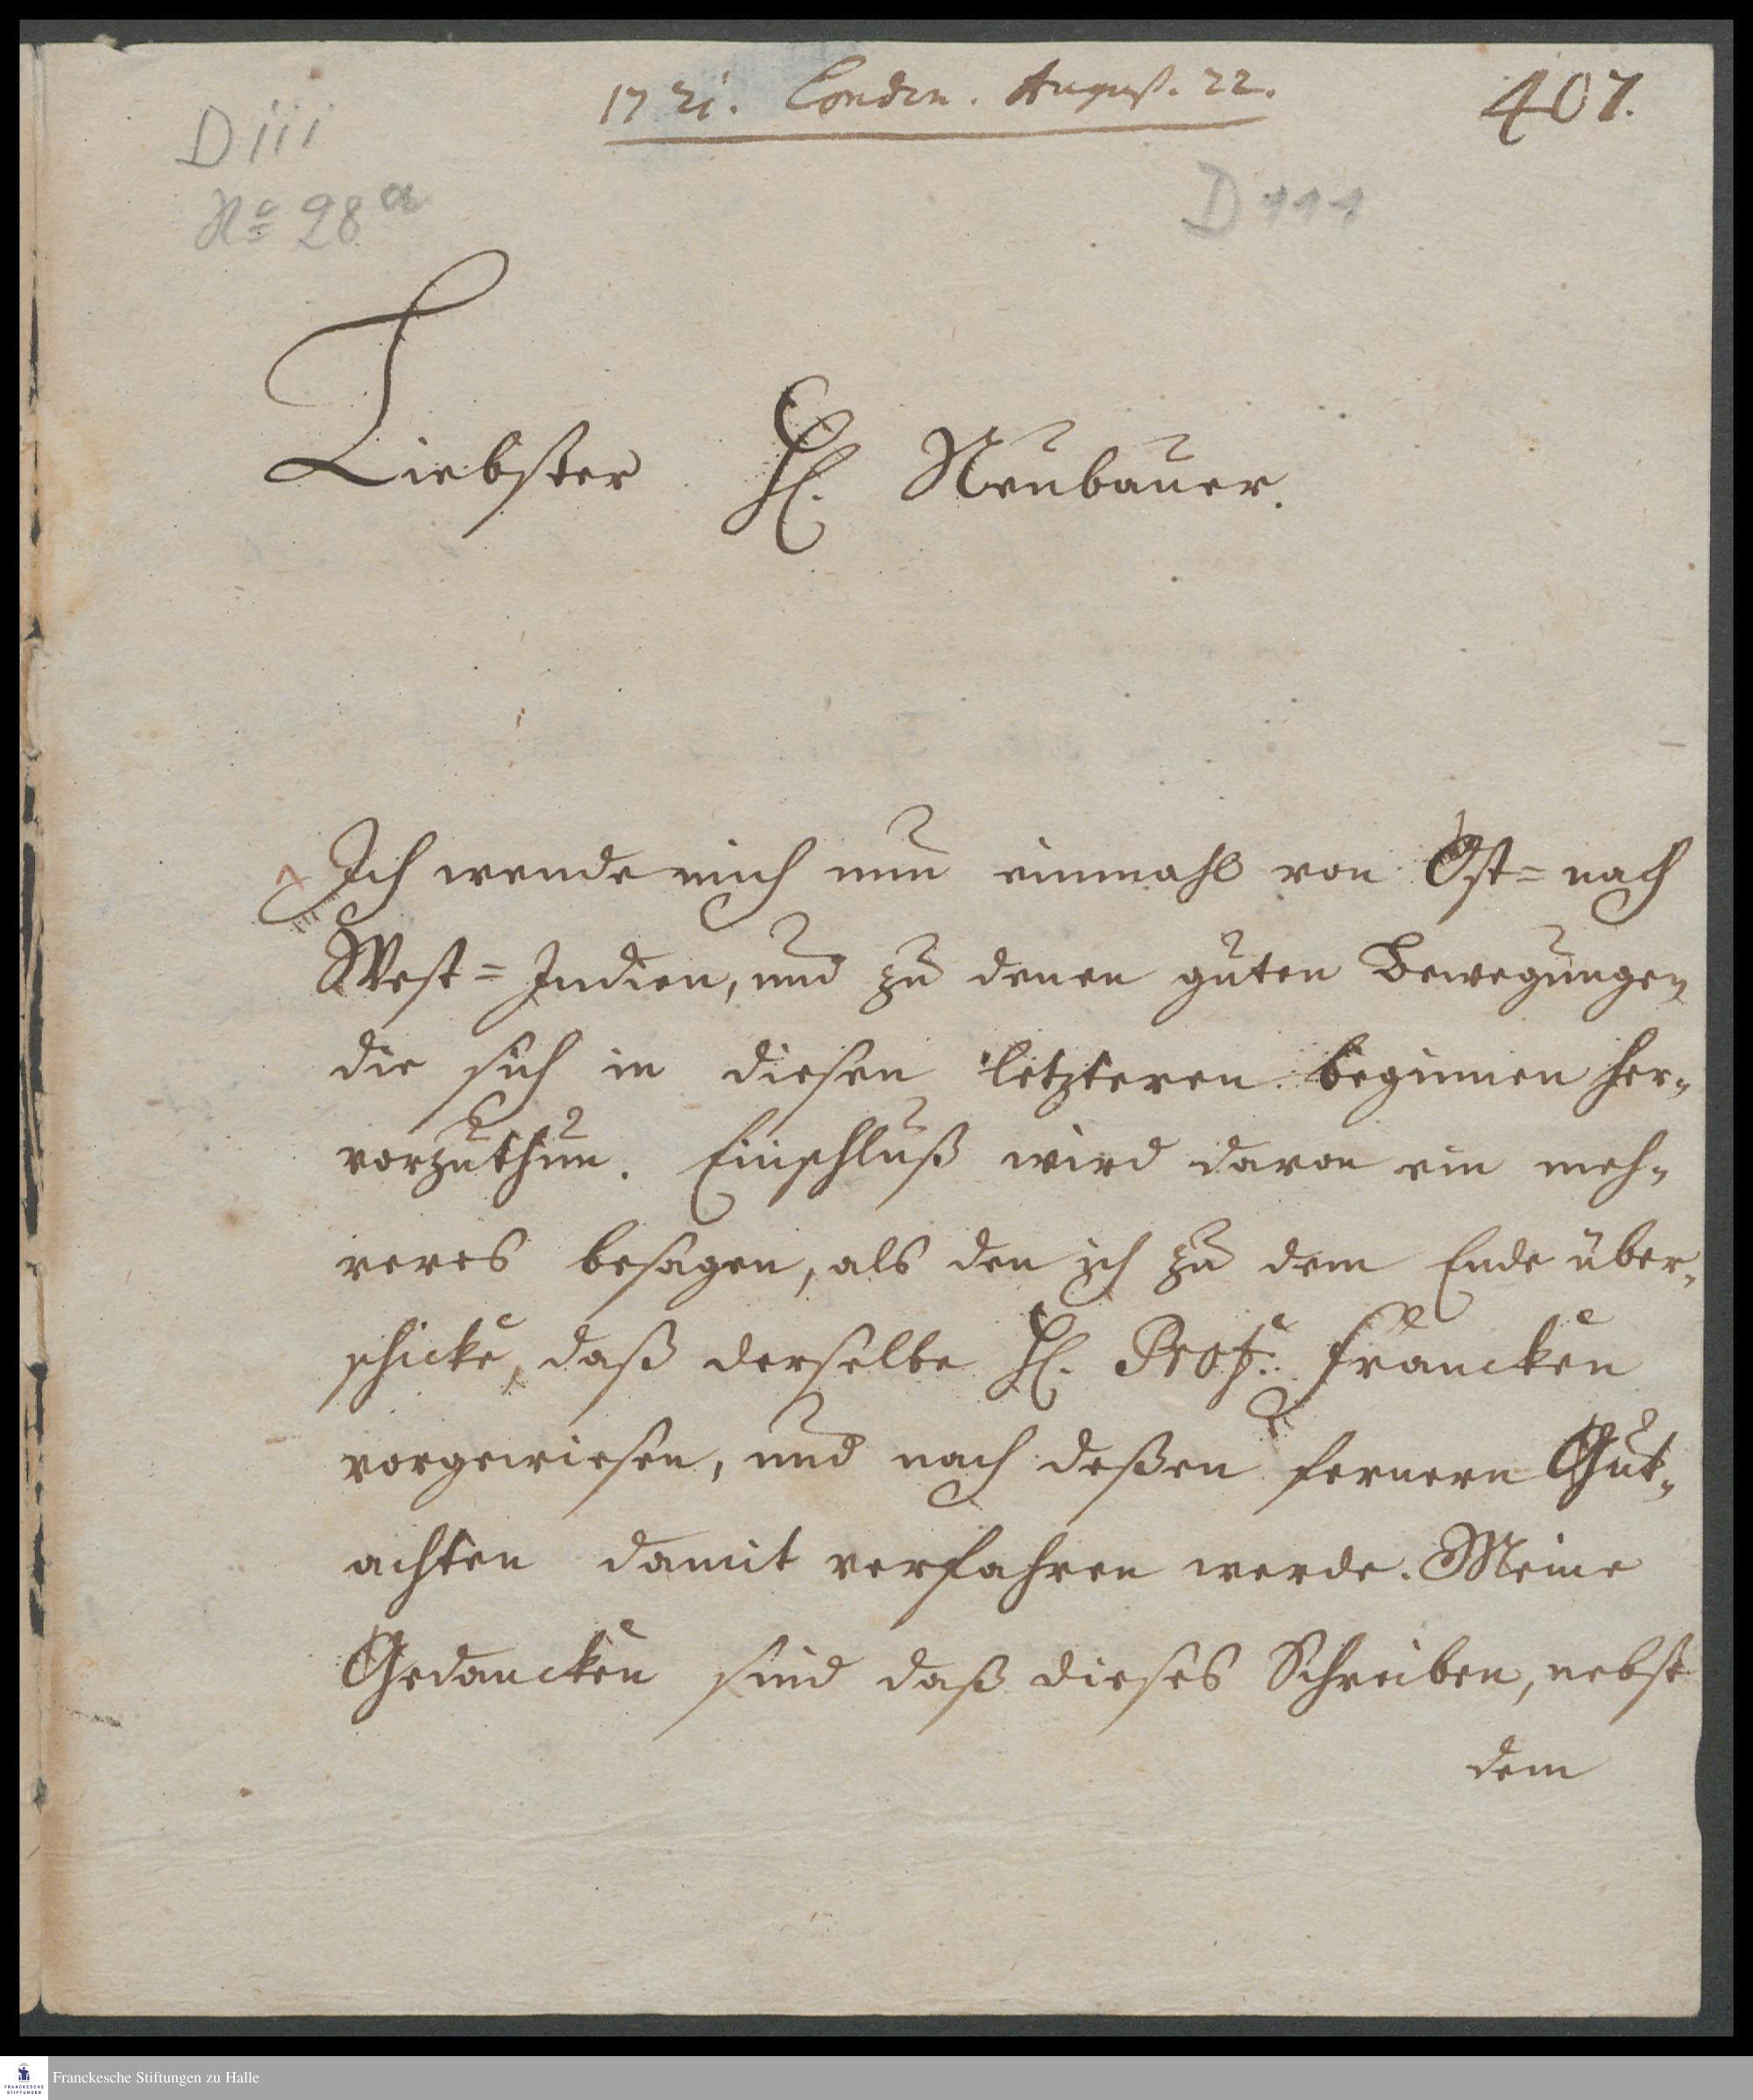 1721. London. August. 22.
407.
D III
No 28a
D 111
Liebster H. Neubauer.
Ich wende mich nun einmahl von Ost= nach
West=Indien, und zu denen guten Bewegungen
die sich in diesen letzteren beginnen her=
vorzuthun. Einschluß wird davon ein meh=
reres besagen, als den ich zu dem Ende über=
schicke, daß derselbe H. Prof. Francken
vorgewiesen, und nach deßen fernern Gut=
achten damit verfahren werde. Meine
Gedancken sind daß dieses Schreiben, nebst
dem
FRANCKESCHE
STIFTUNGEN
Franckesche Stiftungen zu Halle